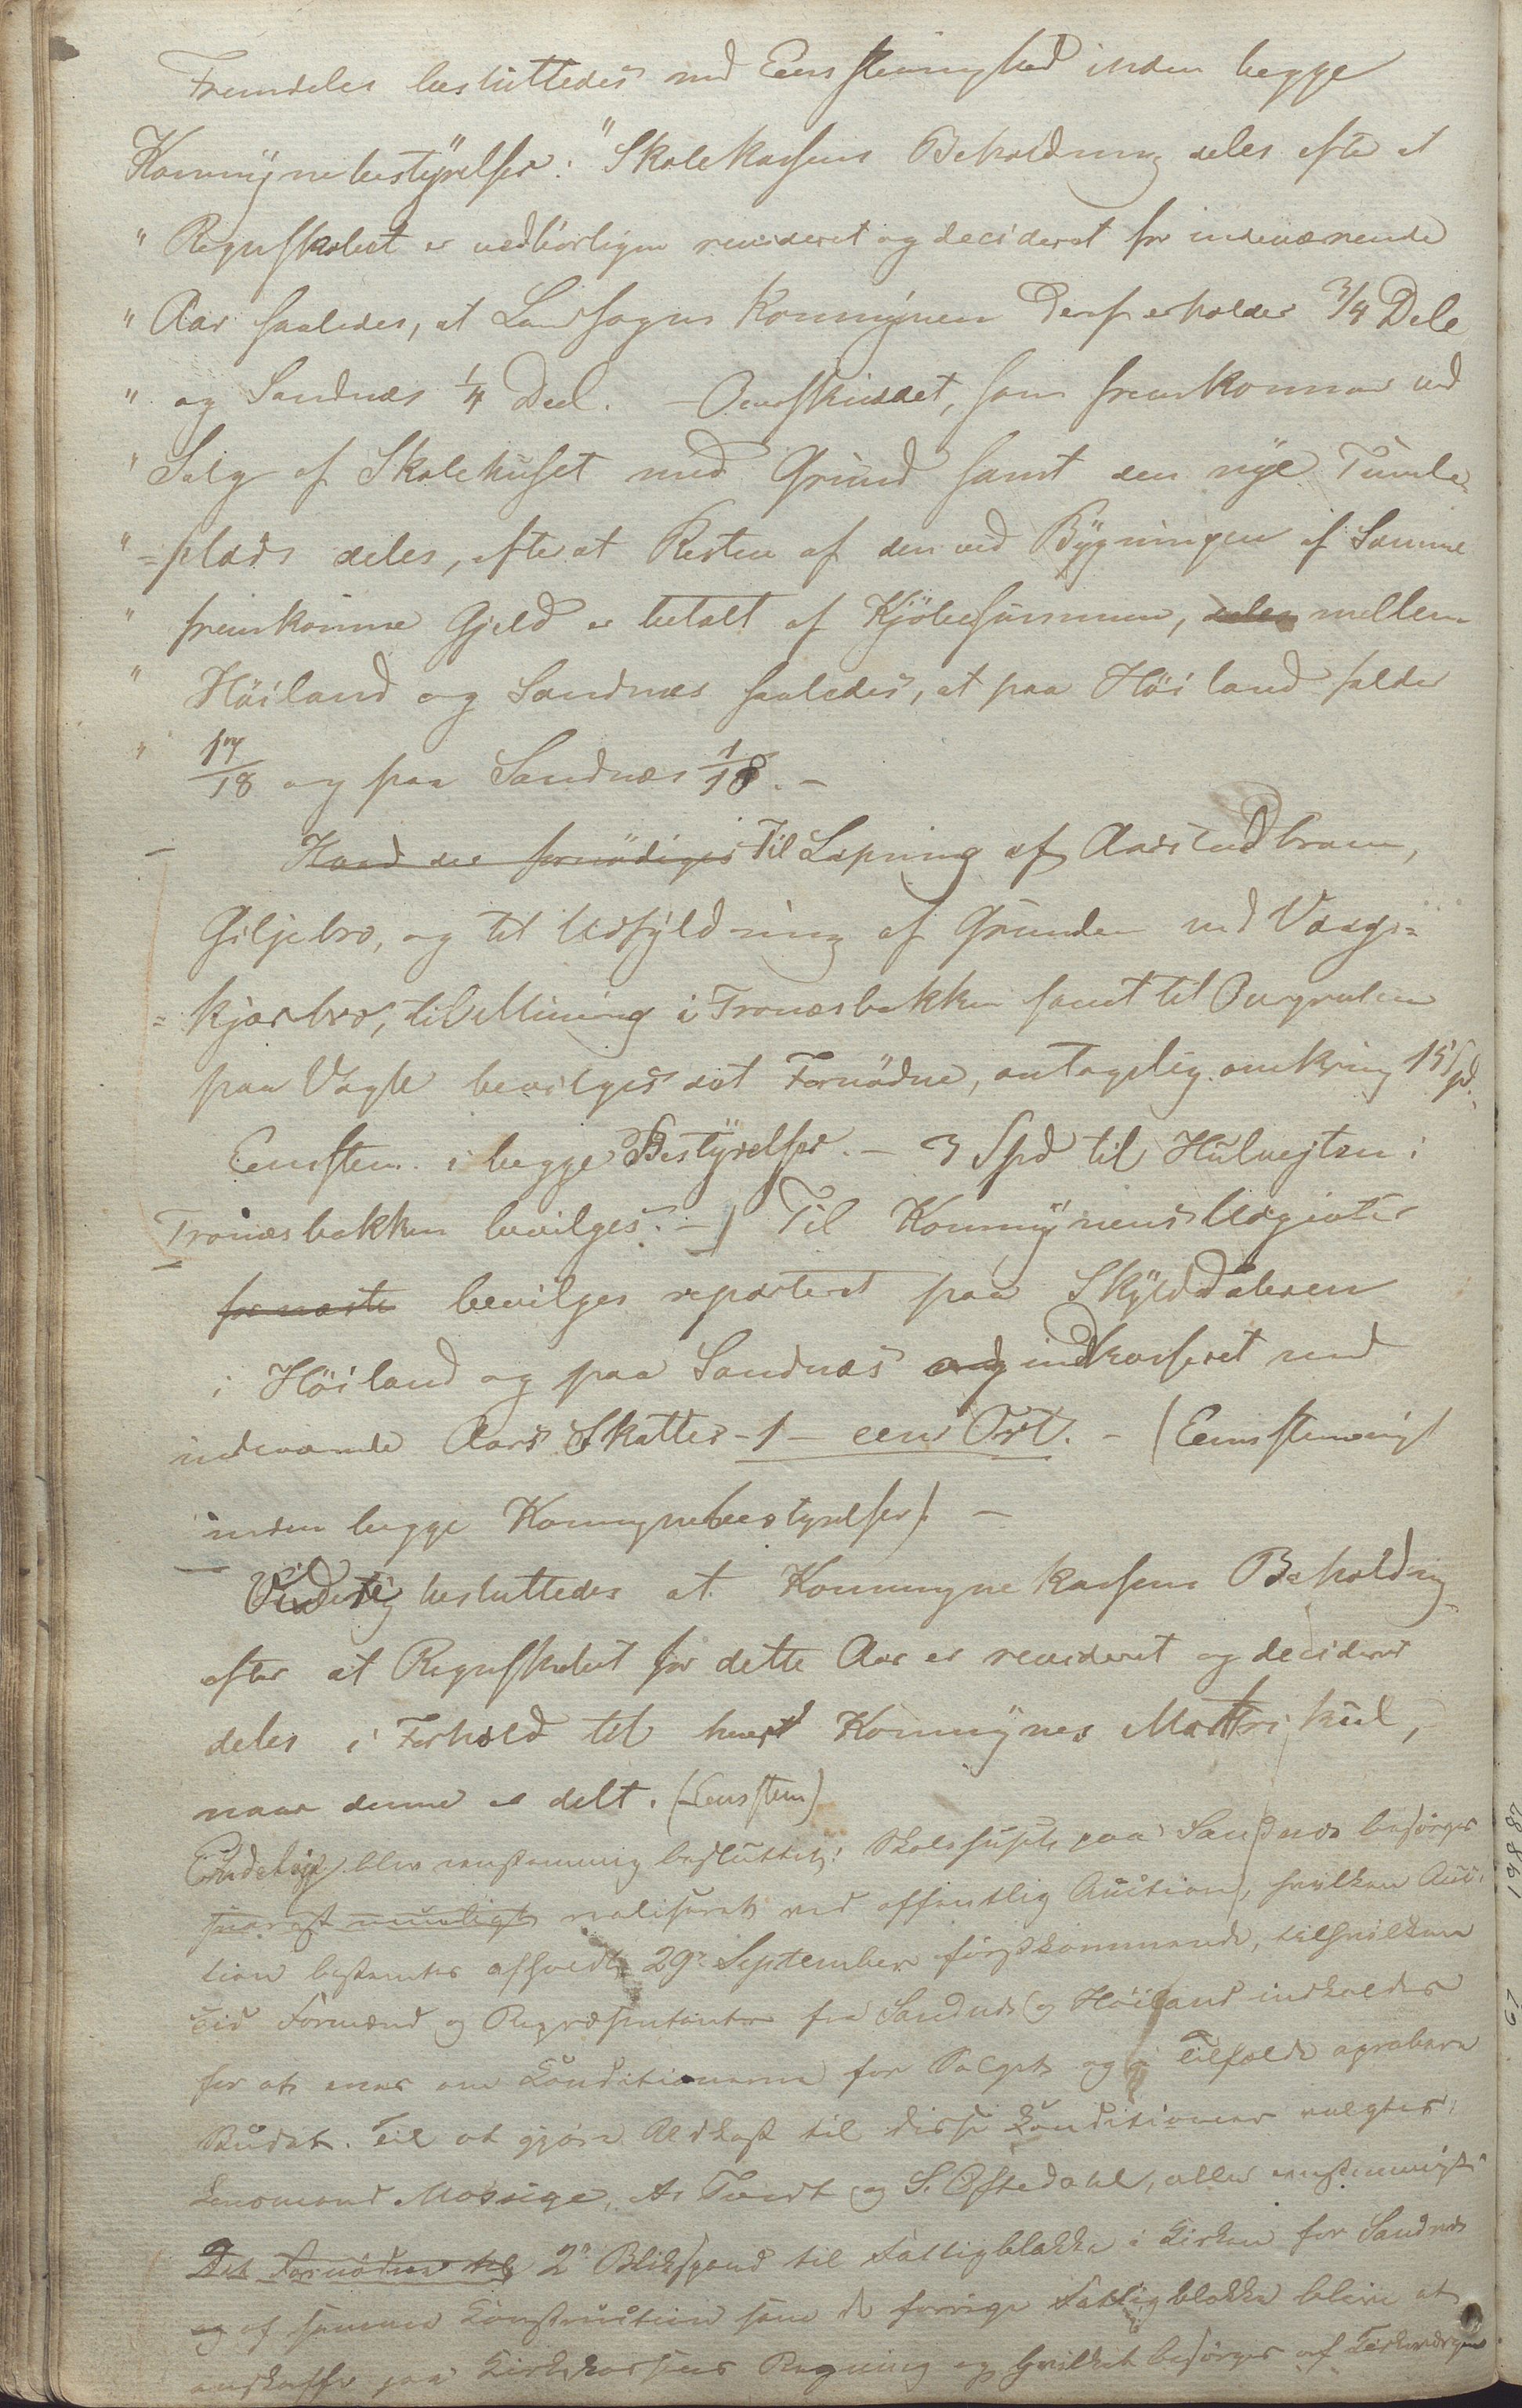 Fremdeles besluttedes med Eenstemmighed inden begge
Kommynebestyrelser: "Skolekassens Beholdning deles efter at
" Regnskabet er vedbörligen revideret og decideret for indeværende
" Aar saaledes, at Landsogns Kommynen deraf erholder 3/4 Dele
" og Sandnæs 1/4 Deel. – Overskuddet, som fremkommer ved
" Salg af Skolehuset med Grund samt den nye Tumle-
" =plads deles, efterat Resten af den ved Bygningen af Samme
" fremkomne Gjeld er betalt af Kjöbesummen, deles mellem
" Höiland og Sandnæs saaledes, at paa Höiland falder
" 17/18 og paa Sandnæs 1/18. –
Hvad der fornödiges Til Lapning af Aarstadbroen,
Giljebro, og til Udfyldning af Grunden ved Vaags=
=kjærbro, til Mining i Tronæsbakken samt til
paa Vagle bevilges det Fornödne, antagelig omkring 15 Spd.
Eenstem. i begge Bestyrelser. – 3 Spd til Hulvejten i
Tronæsbakken bevilges. – Til Kommynens Udgivter
for næste bevilges reparteret paa Skylddaleren
i Höiland og paa Sandnæs og indkasseret med
indeværende Aars Skatter – 1 – een Ort. – (Eenstemmigt
inden begge Kommynebestyrelser). –
besluttedes at Kommynekassens Beholdning
efter at Regnskabet for dette Aar er revideret og decideret
deles i Forhold til hvert Kommynes Mattrikul,
naar denne er delt. (Eenstem)
Endelig blev eenstemmig besluttet: Skolehuset paa Sandnæs besörges
snarest muligt realiseret ved offentlig Auction, hvilken Auc-
tion bestemtes afholdt 29de September förstkommende, til hvilken
Tid Formænd og Repræsentanter fra Sandnæs og Höiland indkaldes
for at enes om Conditionerne for Salget og i Tilfælde aprobere
Budet. Til at gjöre Udkast til disse Conditioner valgtes:
Lensmand Mossige, A. Tvedt og S. Oftedahl, alle eenstemmigt.
Det Fornödne til 2de Blikspand til Fattigblokke i Kirken for Sandnæs
og af samme Construction som de forrige Fattigblokke blive at
anskaffe paa Kirkekassens Regning og hvilket besörges af Kirkeværgen